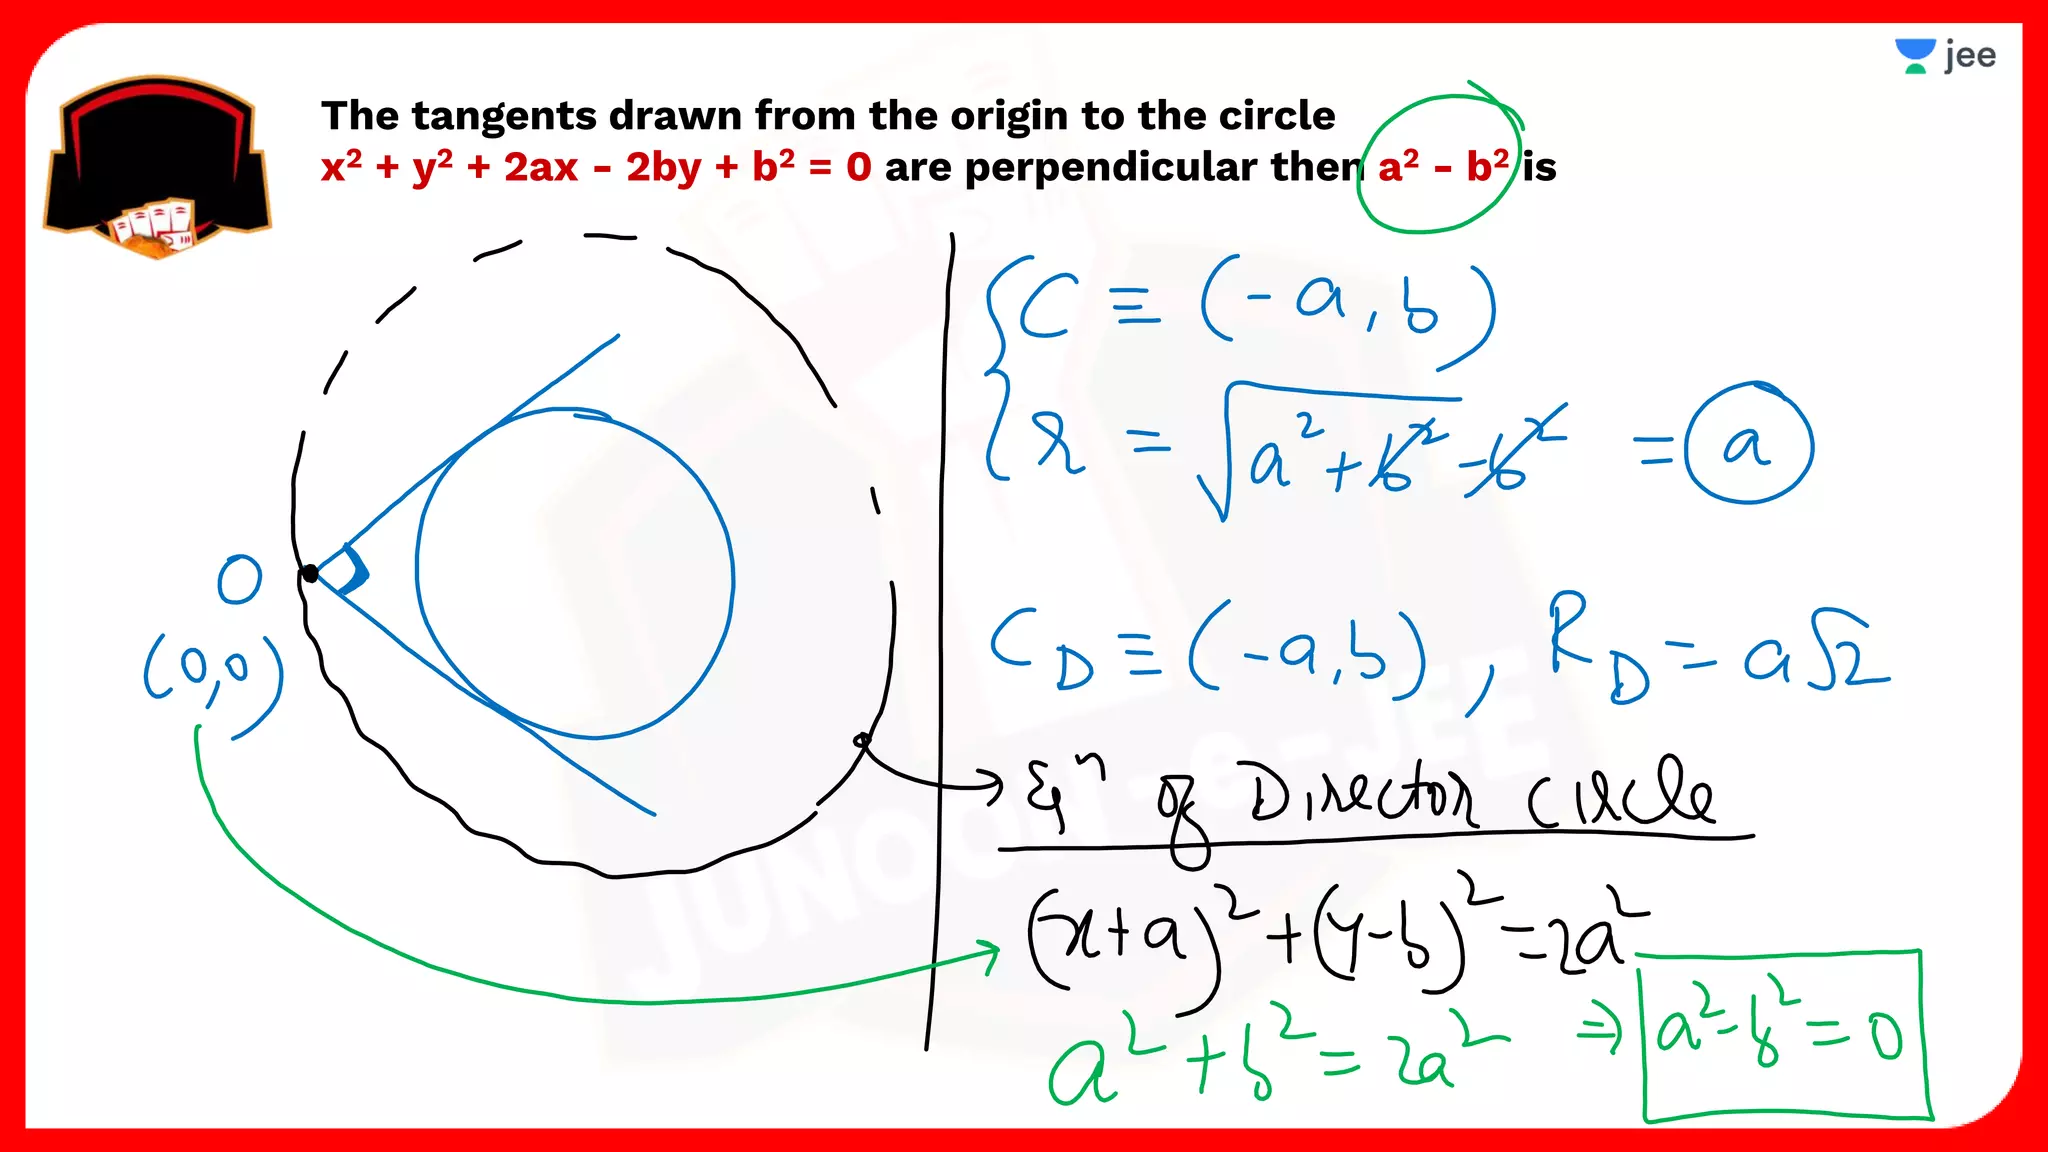 jee
The tangents drawn from the origin to the circle
x² + y² + 2ax - 2by + b² = 0 are perpendicular then a² - b² is
C ≡ (-a, b)
r = √(a² + b² - b²) = a
O
(0,0)
C_D ≡ (-a, b), R_D = a√2
Eqⁿ of Director circle
(x+a)² + (y-b)² = 2a²
a² + b² = 2a² ⇒ a² - b² = 0
JUNOON-e-JEE